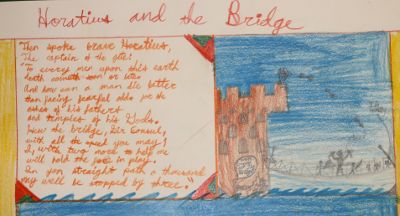 Horatius and the Bridge
Then spoke brave Horatius,
The captain of the gate:
"To every man upon this earth
death cometh soon or late.
And how can a man die better
than facing fearful odds for the
ashes of his fathers
and temples of his Gods.
Hew the bridge, Sir Consul,
with all the speed you may!
I, with two more to help me
will hold the foe in play.
In yon straight path a thousand
may well be stopped by three."